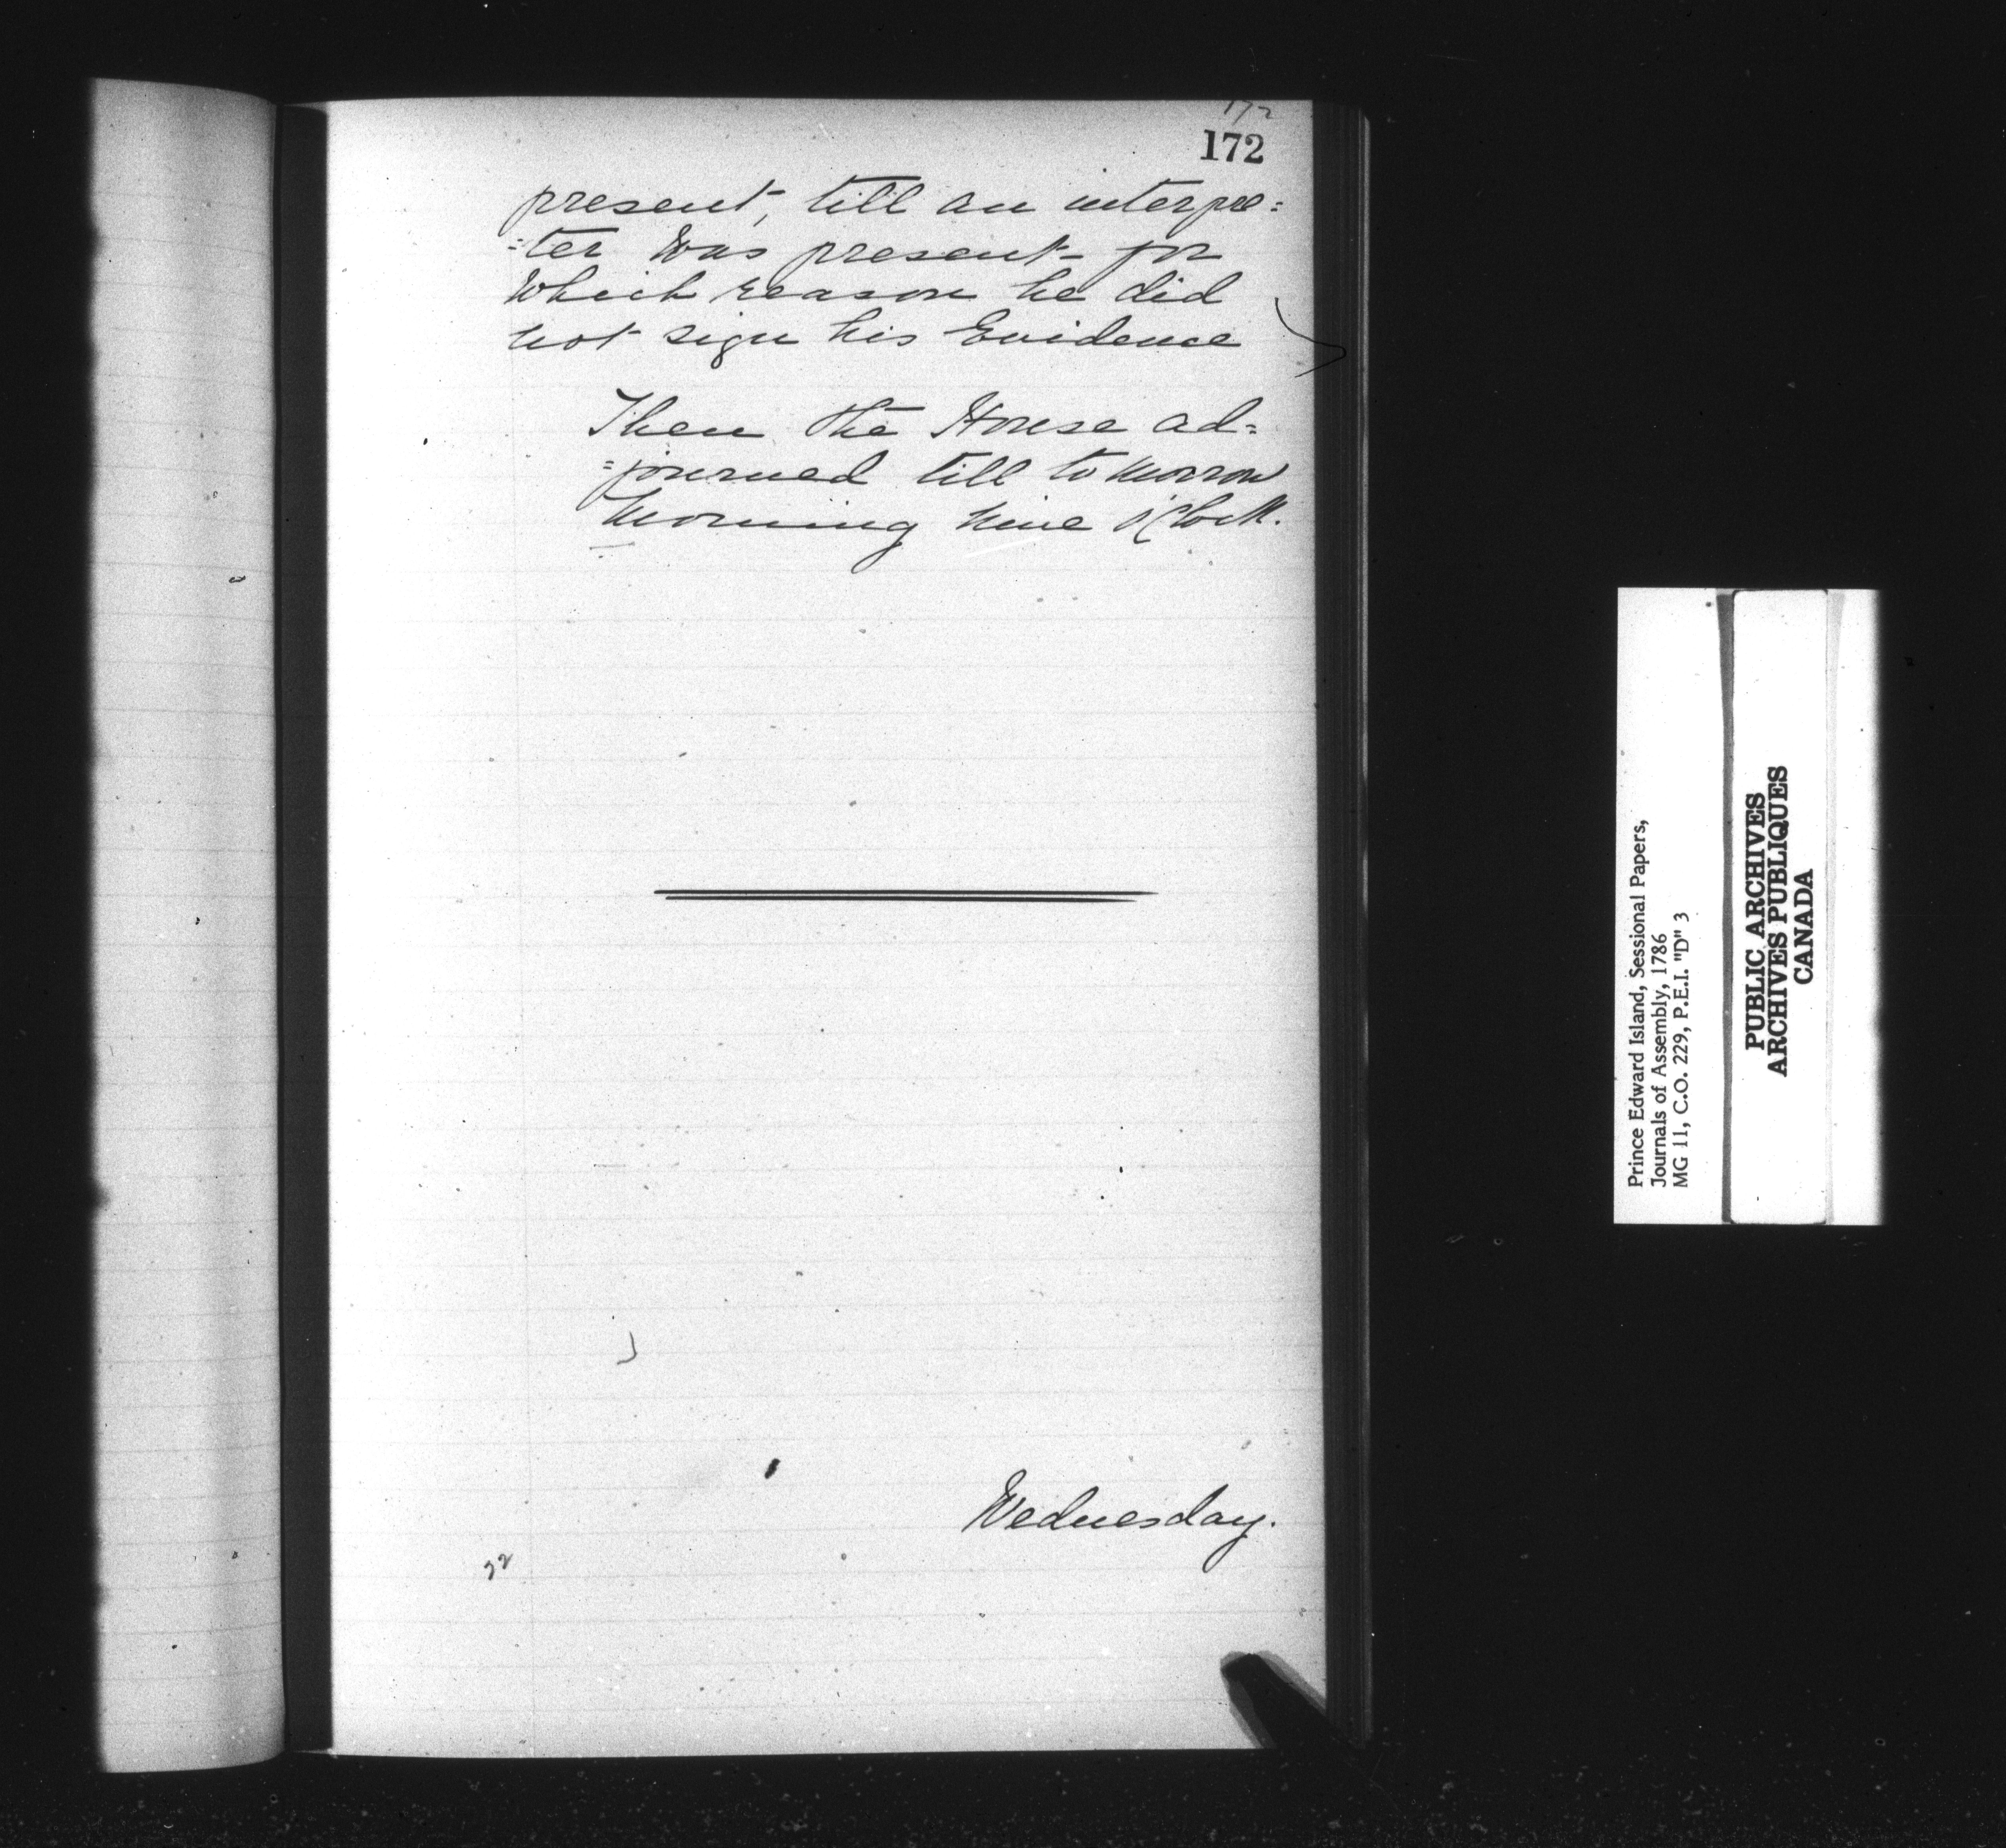 172
172
present, till an interpre=
=ter was present for
which reason he did
not sign his Evidence
Then the House ad=
=journed till to morrow
Morning nine o'Clock.
Wednesday.
Prince Edward Island, Sessional Papers,
Journals of Assembly, 1786
MG 11, C.O. 229, P.E.I. "D" 3
PUBLIC ARCHIVES
ARCHIVES PUBLIQUES
CANADA